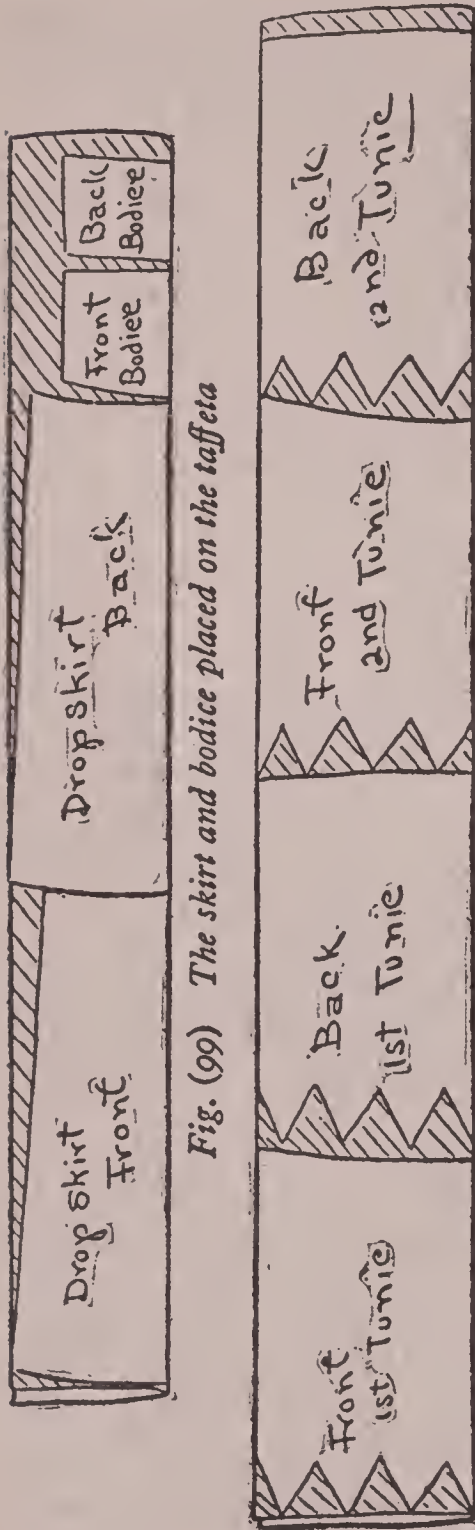 Drop skirt
Front
Drop skirt
Back
Front
Bodice
Back
Bodice
Fig. (99) The skirt and bodice placed on the taffeta
Front
1st Tunic
Back
1st Tunic
Front
2nd Tunic
Back
2nd Tunic